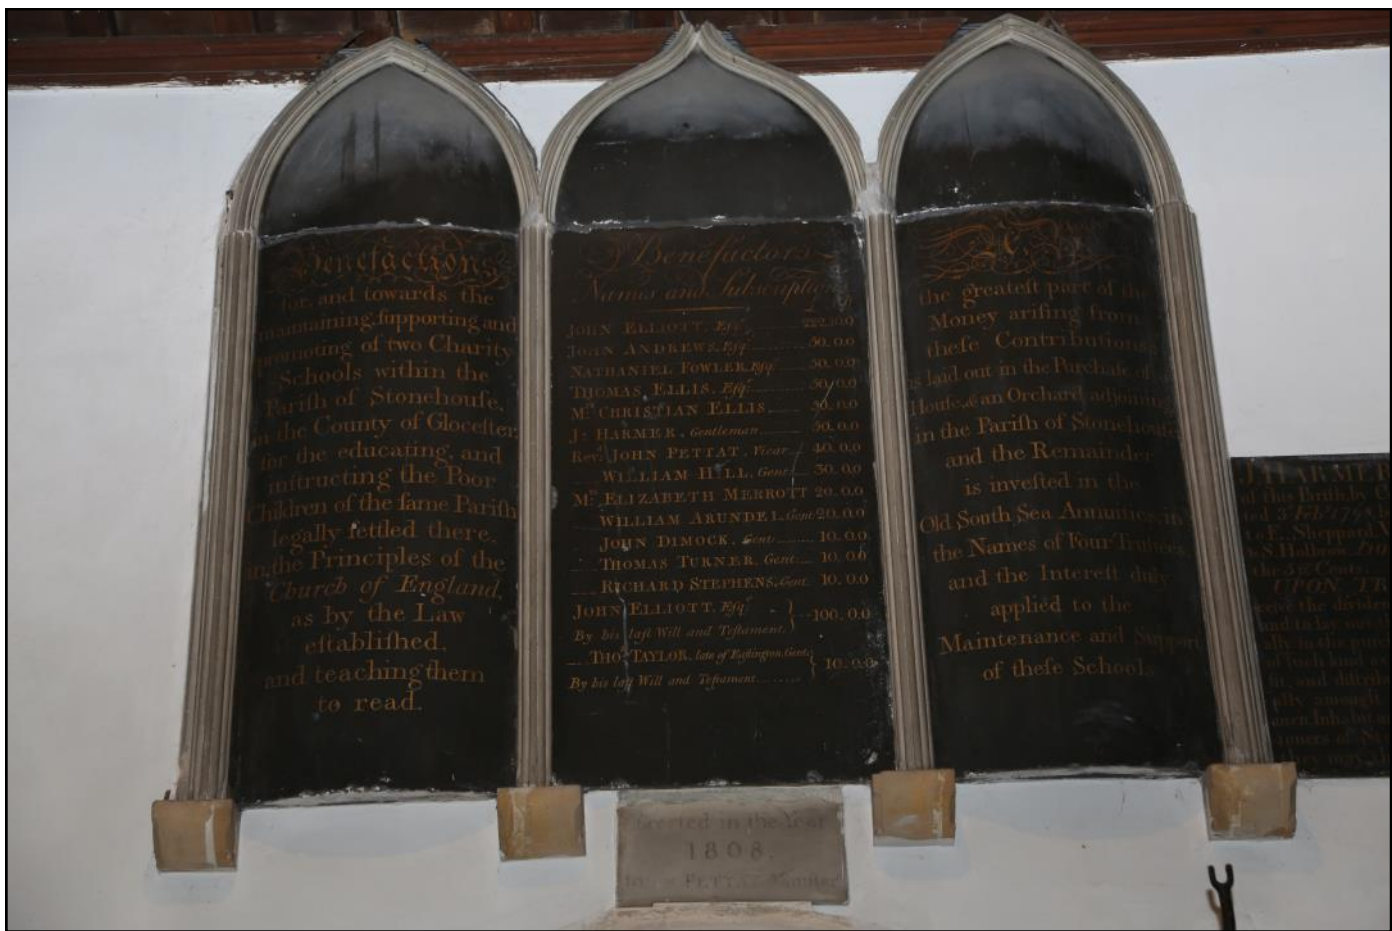 Benefactions
for, and towards the
maintaining, ſupporting and
promoting of two Charity
Schools within the
Pariſh of Stonehouſe,
in the County of Gloceſter,
for the educating, and
inſtructing the Poor
Children of the ſame Pariſh
legally ſettled there,
in the Principles of the
Church of England,
as by the Law
eſtabliſhed,
and teaching them
to read.
Benefactors
Names and Subscriptions
JOHN ELLIOTT, Eſqr. 222.10.0
JOHN ANDREWS, Eſqr. 50.0.0
NATHANIEL FOWLER, Eſqr. 50.0.0
THOMAS ELLIS, Eſqr. 50.0.0
Mr. CHRISTIAN ELLIS 50.0.0
J: HARMER, Gentleman 50.0.0
Revd. JOHN PETTAT, Vicar 40.0.0
WILLIAM HILL, Gent. 30.0.0
Mrs. ELIZABETH MERROTT 20.0.0
WILLIAM ARUNDEL, Gent. 20.0.0
JOHN DIMOCK, Gent. 10.0.0
THOMAS TURNER, Gent. 10.0.0
RICHARD STEPHENS, Gent. 10.0.0
JOHN ELLIOTT, Eſqr. 100.0.0
By his laſt Will and Teſtament.
THOs. TAYLOR, late of Eaſtington, Gent. 10.0.0
By his laſt Will and Teſtament
the greateſt part of the
Money ariſing from
theſe Contributions,
is laid out in the Purchaſe of
Houſe, & an Orchard adjoining
in the Pariſh of Stonehouſe
and the Remainder
is inveſted in the
Old South Sea Annuities, in
the Names of Four Truſtees,
and the Intereſt duly
applied to the
Maintenance and Support
of theſe Schools
Erected in the Year
1808.
PETTAT
J. HARMER
of this Pariſh, by
3d Feby. 1798
E. Sheppard,
S. Holbrow,
the 5 pr Cents.
UPON TR
the dividen
and to lay out
in the purc
of ſuch kind
and diſtrib
amongſt
Inhabitan
they may